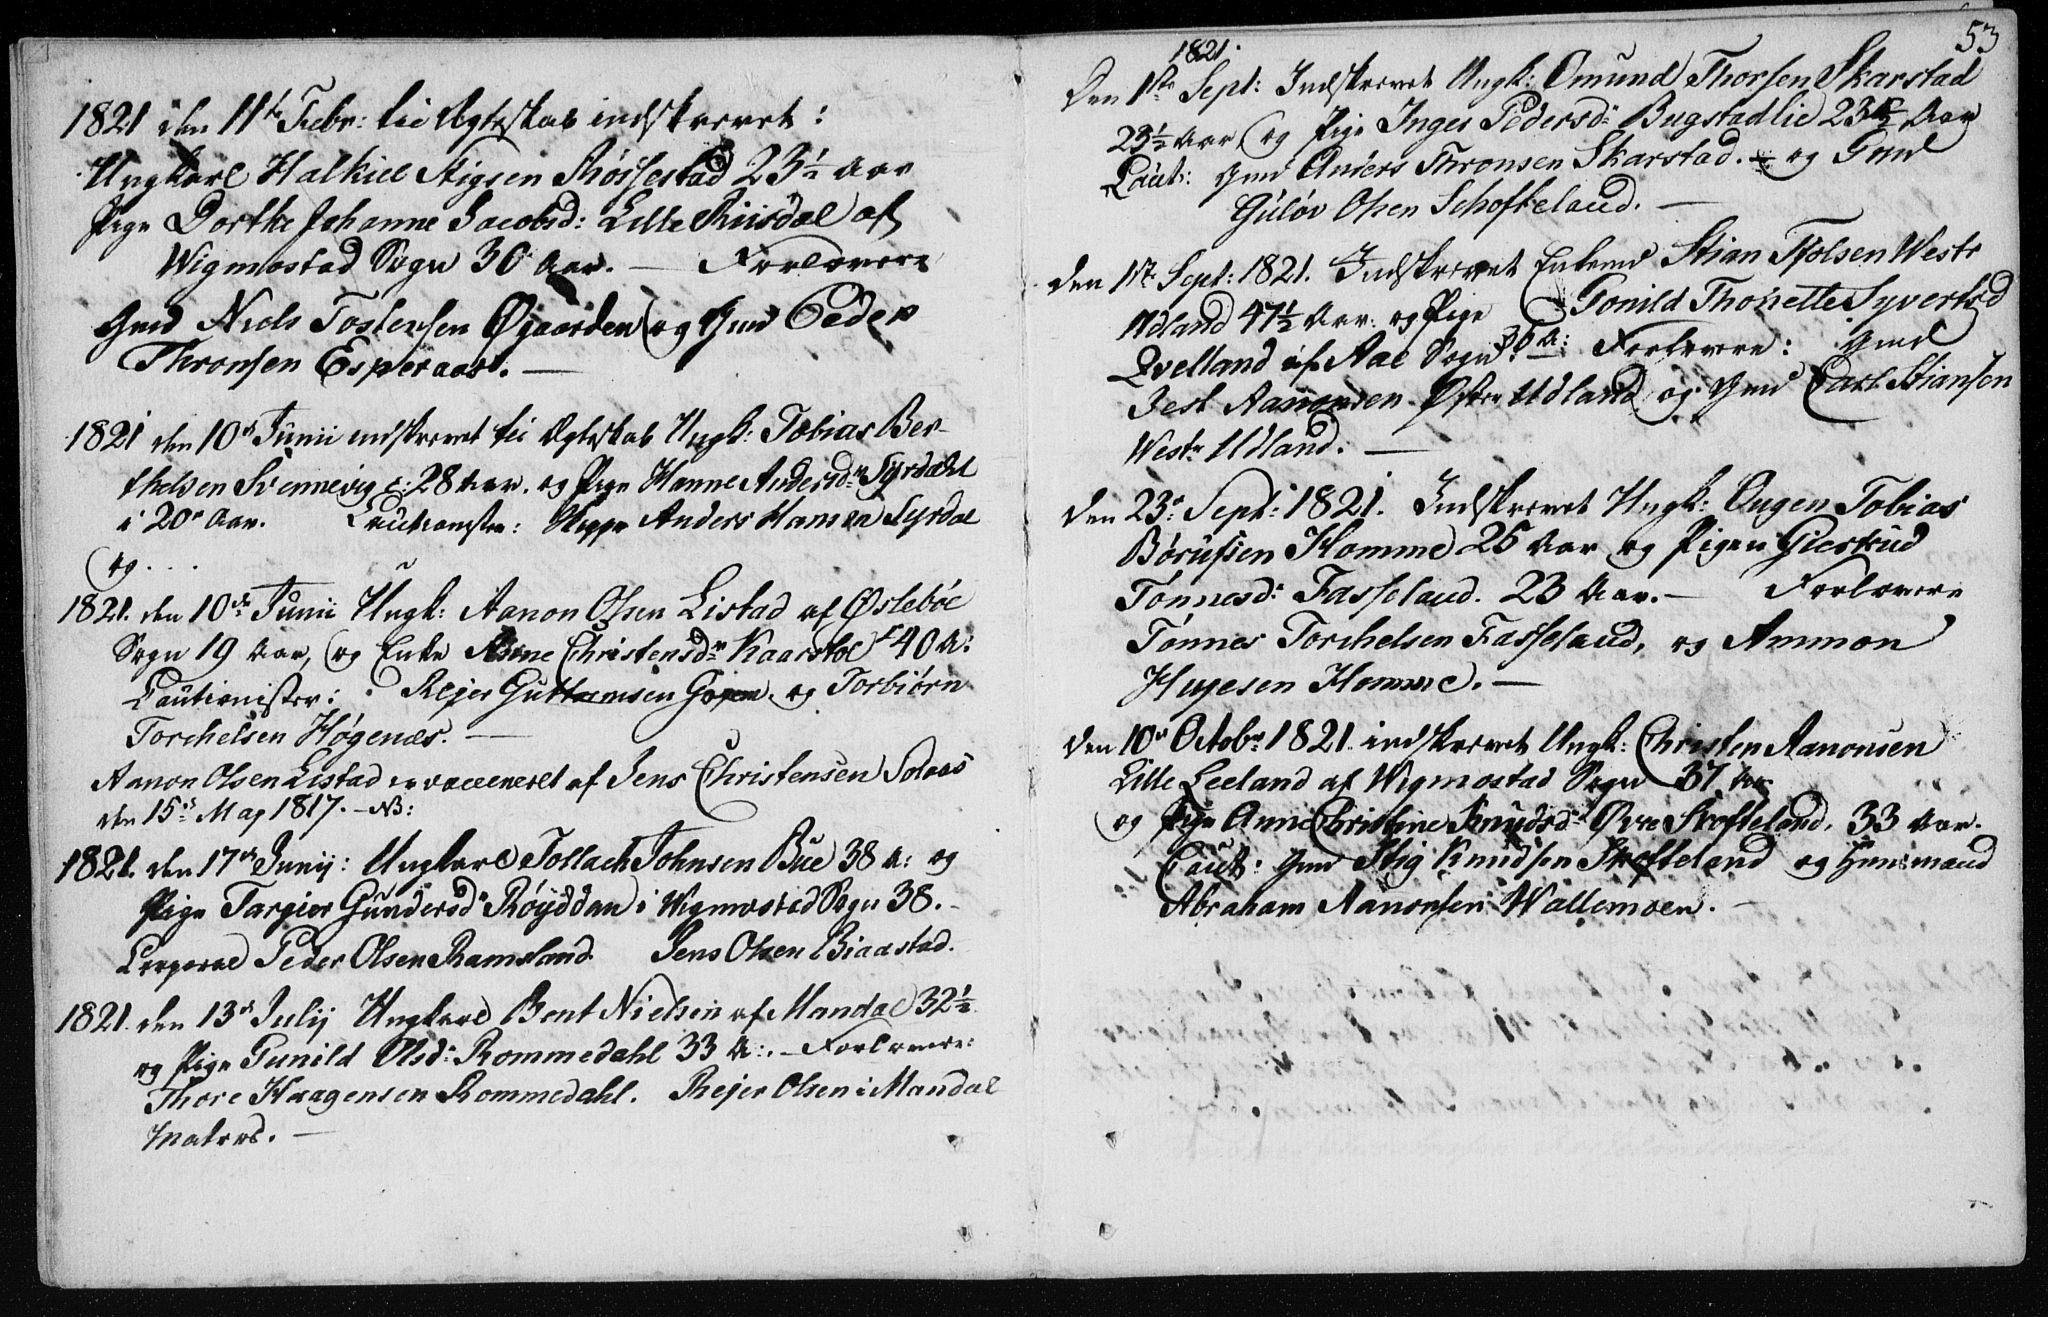 1821 den 11te Febr: til Ægteskab indskrevet:
Ungkarl Halkiel Stigsen Røssestad 23½ Aar
Pige Dorthe Johanne Jacobsd: Lille Riisdal af
Wigmostad Sogn 30 Aar. — Forlovere
Gmd Niels Tostensen Øgaarden og Gmd Peder
Thronsen Esperaas. —
1821 den 10de Junii indskrevet til Ægteskab Ungk: Tobias Ber-
thelsen Svennevig i 28 Aar. og Pige Hanne Andersdr Syrdahl
i 20de Aar. Cautionister: Anders Hansen Syrdal
og . . .
1821. den 10de Junii Ungk: Aanon Olsen Listad af Øslebøe
Sogn 19 Aar, og Enke Christensdr Kaarstøl 40 A:
Cautionister: Rejer Guttormsen og Torbiørn
Torchelsen Høgenæs. —
Aanon Olsen Listad er vaccineret af Jens Christensen Solaas
den 15de May 1817. — NB:
1821. den 17de Junij: Ungkarl Tollach Johnsen Bue 38 A: og
Pige Targier Gundersdr Røyddan i Wigmostad Sogn 38. -
Corporal Peder Olsen Ramsland. Jens Olsen Biaastad.
1821. den 13de Julij Ungkarl Bent Nielsen af Mandal 32½
og Pige Gunild Olsd: Rommedahl 33 A:. — Forlovere:
Thore Haagensen Rommedahl. Rejer Olsen i Mandal
Matros. —
53
1821.
Den 1ste Sept: Indskrevet Ungk: Omund Thorsen Skarstad
23½ Aar, og Pige Inger Pedersd: Bugstadlie 23½ Aar
Caut: Gmd Anders Thronsen Skarstad. — og Gmd
Guløv Olsen Schofteland. —
den 1ste Sept: 1821. Indskrevet Enkemd Stian Tjølsen Westr
Udland 47½ Aar. og Pige Gonild Thonette Syvertsd
Qvelland af Aae Sogn 36 A: Forlovere: Gmd
Jest Aanonsen Østre Udland og Gmd Carl Stiansen
Westr Udland. —
den 23de Sept: 1821. Indskrevet Ungk: Ougen Tobias
Børufsen Homme 25 Aar og Pigen Giertrud
Tønnesd: Fasseland. 23 Aar. — Forlovere
Tønnes Torchelsen Fasseland, og Ammon
Hugesen Homme. —
den 10de Octobr 1821. indskrevet Ungk: Christen Aanonsen
Lille Leeland af Wigmostad Sogn 37 Aar
og Pige Anne Christine Knudsdr Øvre Skofteland, 33 Aar.
Caut: Gmd Stig Knudsen Skofteland og Huusmand
Abraham Aanonsen Wallemoen. —